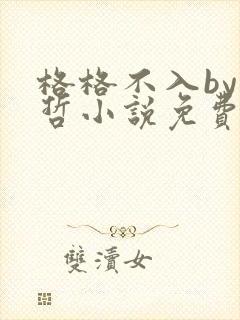 格格不入by
哲小說免費
雙瀆女